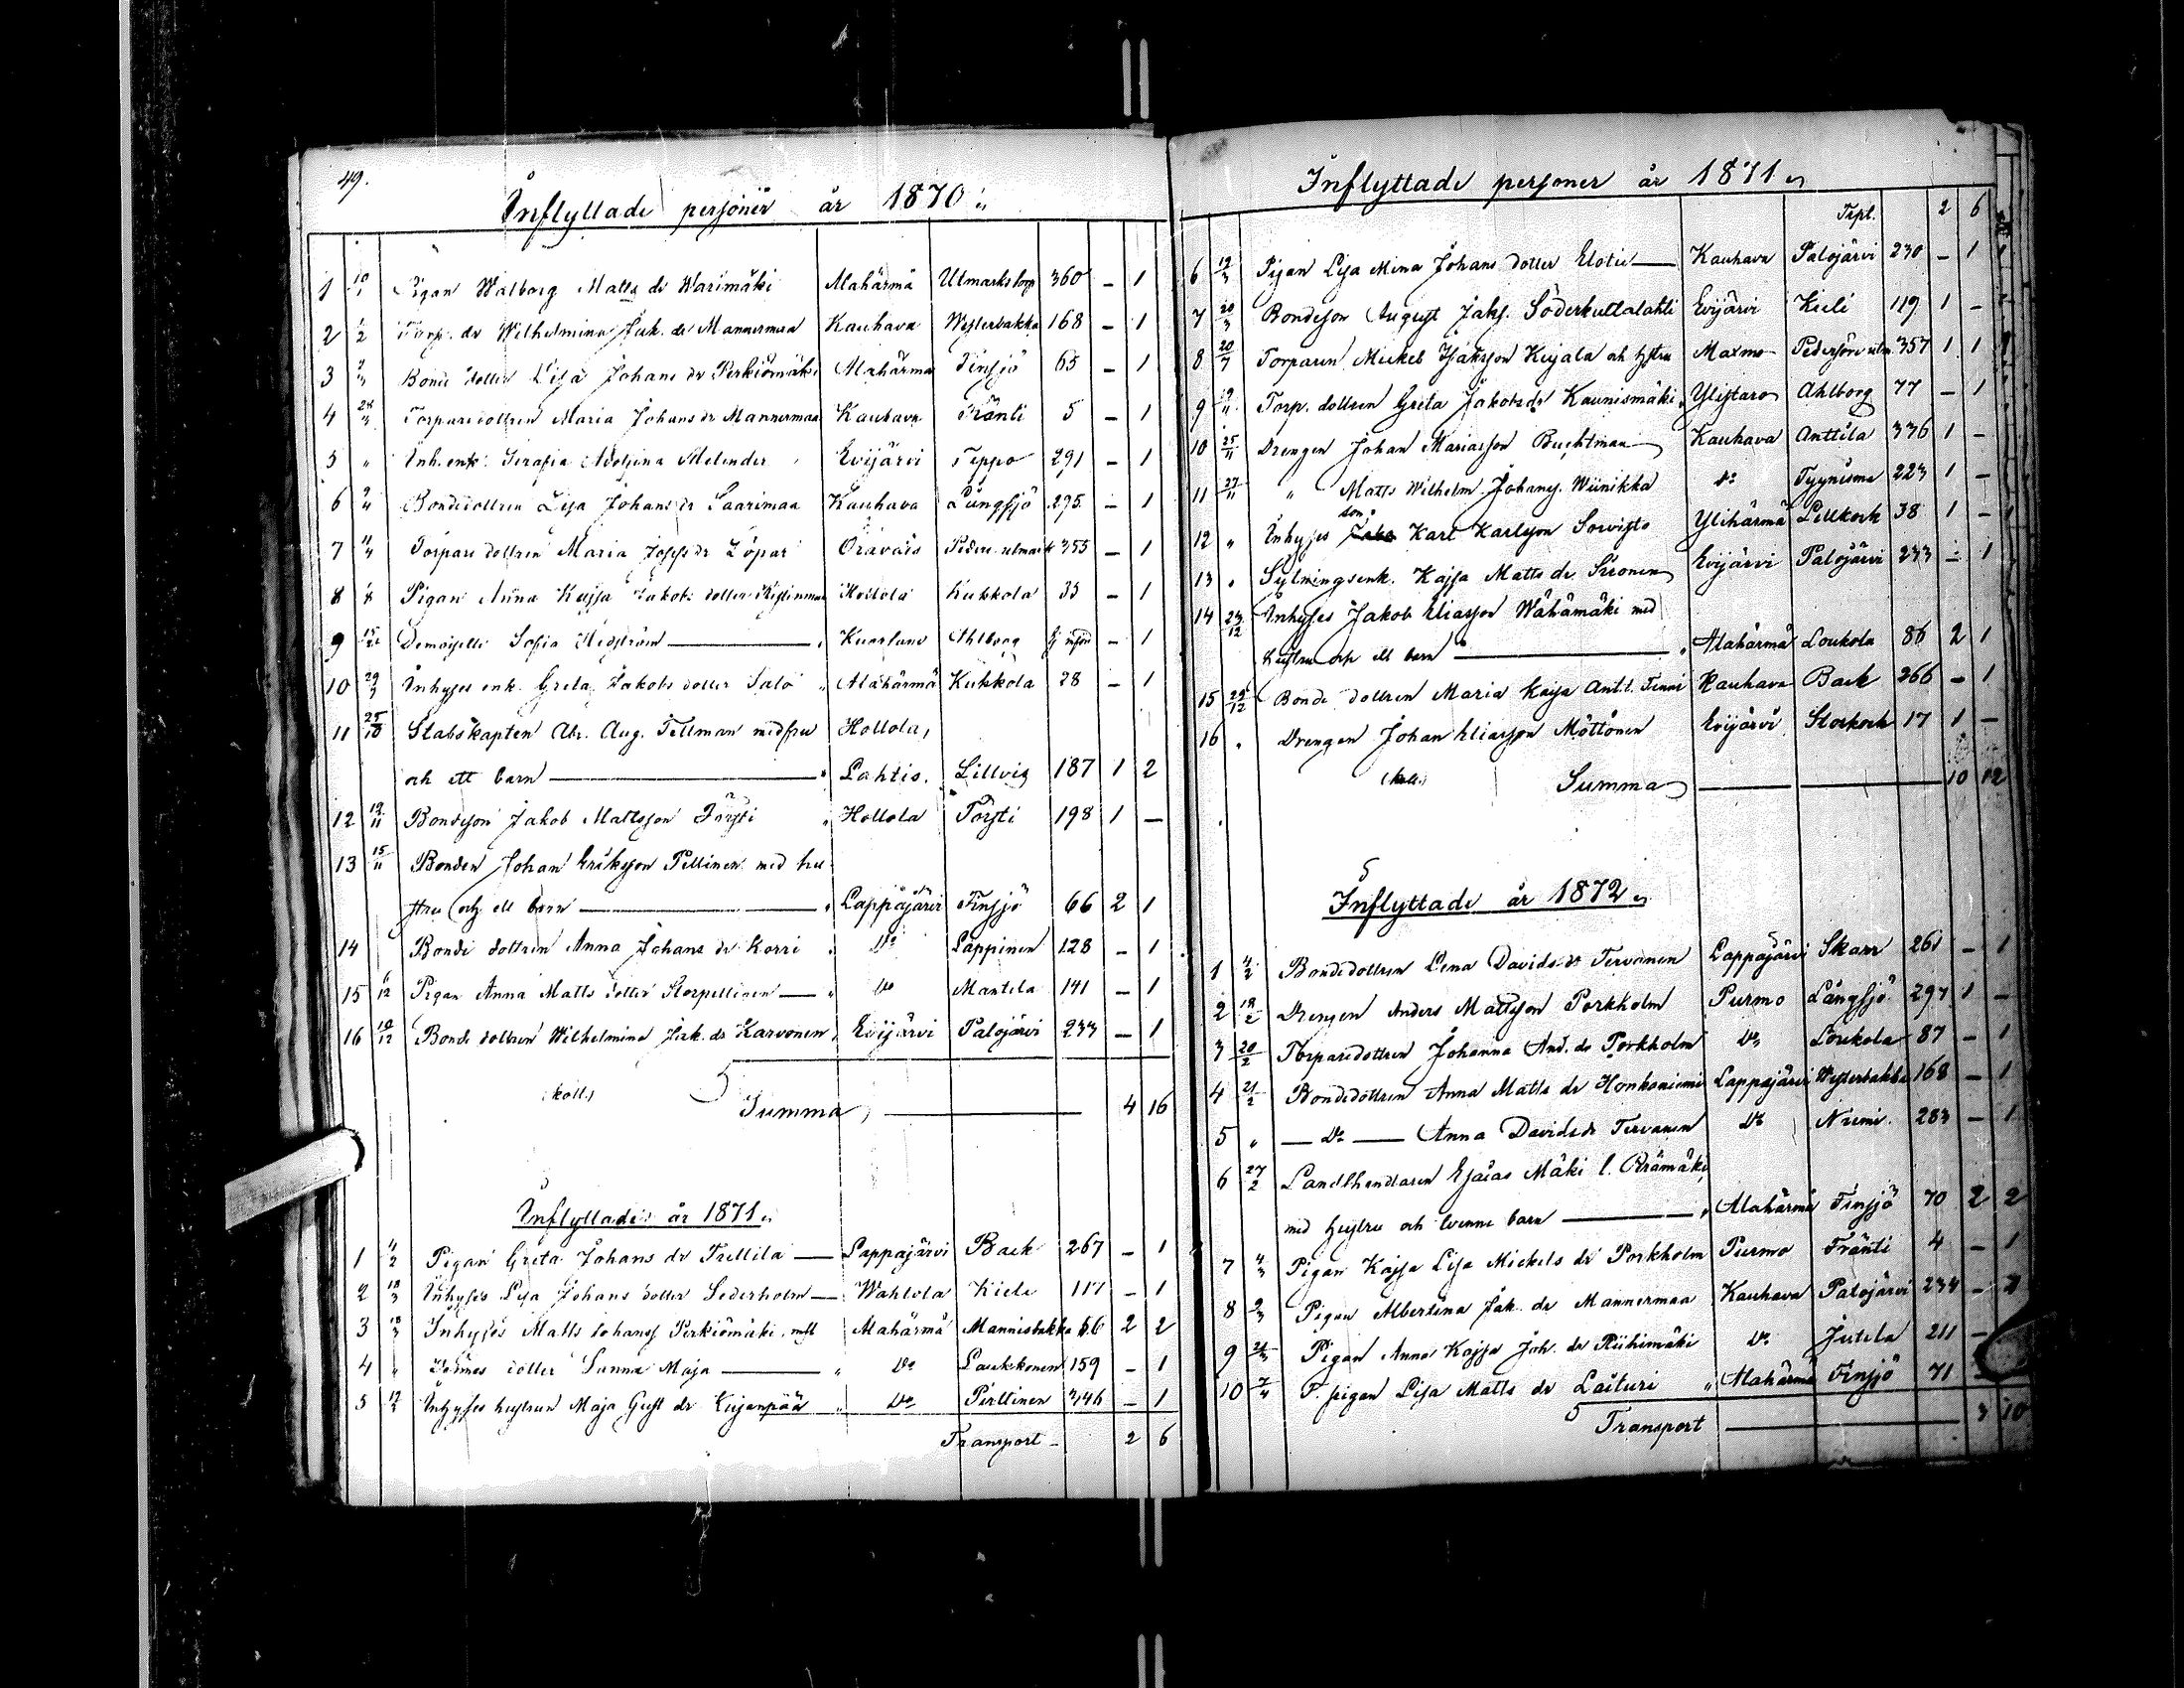 49.
Inflyttade personer år 1870
1 Pigan Walborg Matts dr Warimäki Alahärmä Utmarkstorp 360 – 1
2 1/2 Torp. dr Wilhelmina Jak. dr Mannermaa Kauhava Westerbakka 168 – 1
3 Bonde dotter Lisa Johans dr Perkiömäki Alahärmä Finsjö 65 – 1
4 28/3 Torpare dottren Maria Johans dr Mannermaa Kauhava Fränti 5 – 1
5 " Inh. enk. Serafia Melender Evijärvi Teppo 291 – 1
6 Bondedottren Lisa Johans dr Saarimaa Kauhava Långsjö 295 – 1
7 Torpare dottren Maria Josefs dr Löpar Oravais Peders. utmark 355 – 1
8 Pigan Anna Kajsa Jakobs dotter Hollola Kukkola 35 – 1
9 Demoiselle Sofia Kuortane Ahlborg – 1
10 29/9 Inhyses enk. Greta Jakobs dotter Salo Alahärmä Kukkola 28 – 1
11 25/10 Stabskapten Abr. Aug. Tellman med fru Hollola,
och ett barn Lahtis. Lillvis 187 1 2
12 12/11 Bondeson Jakob Mattsson Försti Hollola Försti 198 1 –
13 15/11 Bonden Johan Eriksson Pellinen med hu
stru och ett barn Lappajärvi Finsjö 66 2 1
14 Bonde dottren Anna Johans dr Korri Do Lappinen 128 – 1
15 6/12 Pigan Anna Matts dotter Storpellinen Do Mantila 141 – 1
16 12/12 Bonde dottren Wilhelmina Jak. dr Karvonen Evijärvi Palojärvi 233 – 1
koll. Summa 4 16
Inflyttade år 1871
1 4/2 Pigan Greta Johans dr Trellilä Lappajärvi Back 267 – 1
2 18/3 Inhyses Lisa Johans dotter Sederholm Wähtola Kieli 117 – 1
3 18/3 Inhyses Matts Johanss Perkiömäki Alahärmä Mannisbakka 56 2 2
4 " dotter Sanna Maja Do Laukkonen 159 – 1
5 Inhyses hustrun Maja Gust. dr Kujanpää Do Pirttinen 346 – 1
Transport 2 6
Inflyttade personer år 1871
Trpt. 2 6
6 12/3 Pigan Lisa Mina Johans dotter Kauhava Palojärvi 230 – 1
7 20/3 Bondeson August Jaks. Söderkultalahti Evijärvi Kieli 119 1 –
8 20/7 Torparen Mickel Isaksson Kujala och hstru Maxmo Pedersöre utm. 357 1 1
9 19/11 Torp. dottren Greta Jakobs dr Kaunismäki Ylistaro Ahlborg 77 – 1
10 25/11 Drengen Johan Mariasson Kauhava Anttila 336 1 –
11 27/11 " Matts Wilhelm Johans. Wiinikka Do Tyynismaa 223 1 –
son
12 " Inhyses Karl Karlsson Sorvisto Ylihärmä Lillkock 38 1 –
13 " Sytningsenk. Kajsa Matts dr Sironen Evijärvi Palojärvi 233 – 1
14 23/12 Inhyses Jakob Eliasson Wähämäki med
hustru och ett barn Alahärmä Loukola 86 2 1
15 29/12 Bonde dottren Maria Kajsa Kauhava Back 266 – 1
16 " Drengen Johan Eliasson Möttönen Evijärvi Storkock 17 1 –
koll. Summa 10 12
Inflyttade år 1872
1 4/2 Bondedottren Lena Davids dr Tervonen Lappajärvi Skarr 261 – 1
2 18/2 Drengen Anders Mattsson Porkholm Purmo Långsjö 297 1 –
3 20/2 Torparedottren Johanna And. dr Porkholm Do Loukola 87 – 1
4 21/2 Bondedottren Anna Matts dr Honkaniemi Lappajärvi Westerbakka 168 – 1
5 " — Do — Anna Davids dr Tervonen Do Niemi 283 – 1
6 27/2 Landthandlaren Esaias Mäki l.
med hustru och tvenne barn Alahärmä Finsjö 70 2 2
7 4/3 Pigan Kajsa Lisa Mickels dr Porkholm Purmo Fränti 4 – 1
8 9/3 Pigan Albertina Jak. dr Mannermaa Kauhava Palojärvi 234 – 1
9 Pigan Anna Kajsa Joh. dr Riihimäki Do Jutila 211 –
10 7/4 P. pigan Lisa Matts dr Laituri Alahärmä Finsjö 71
Transport 3 10